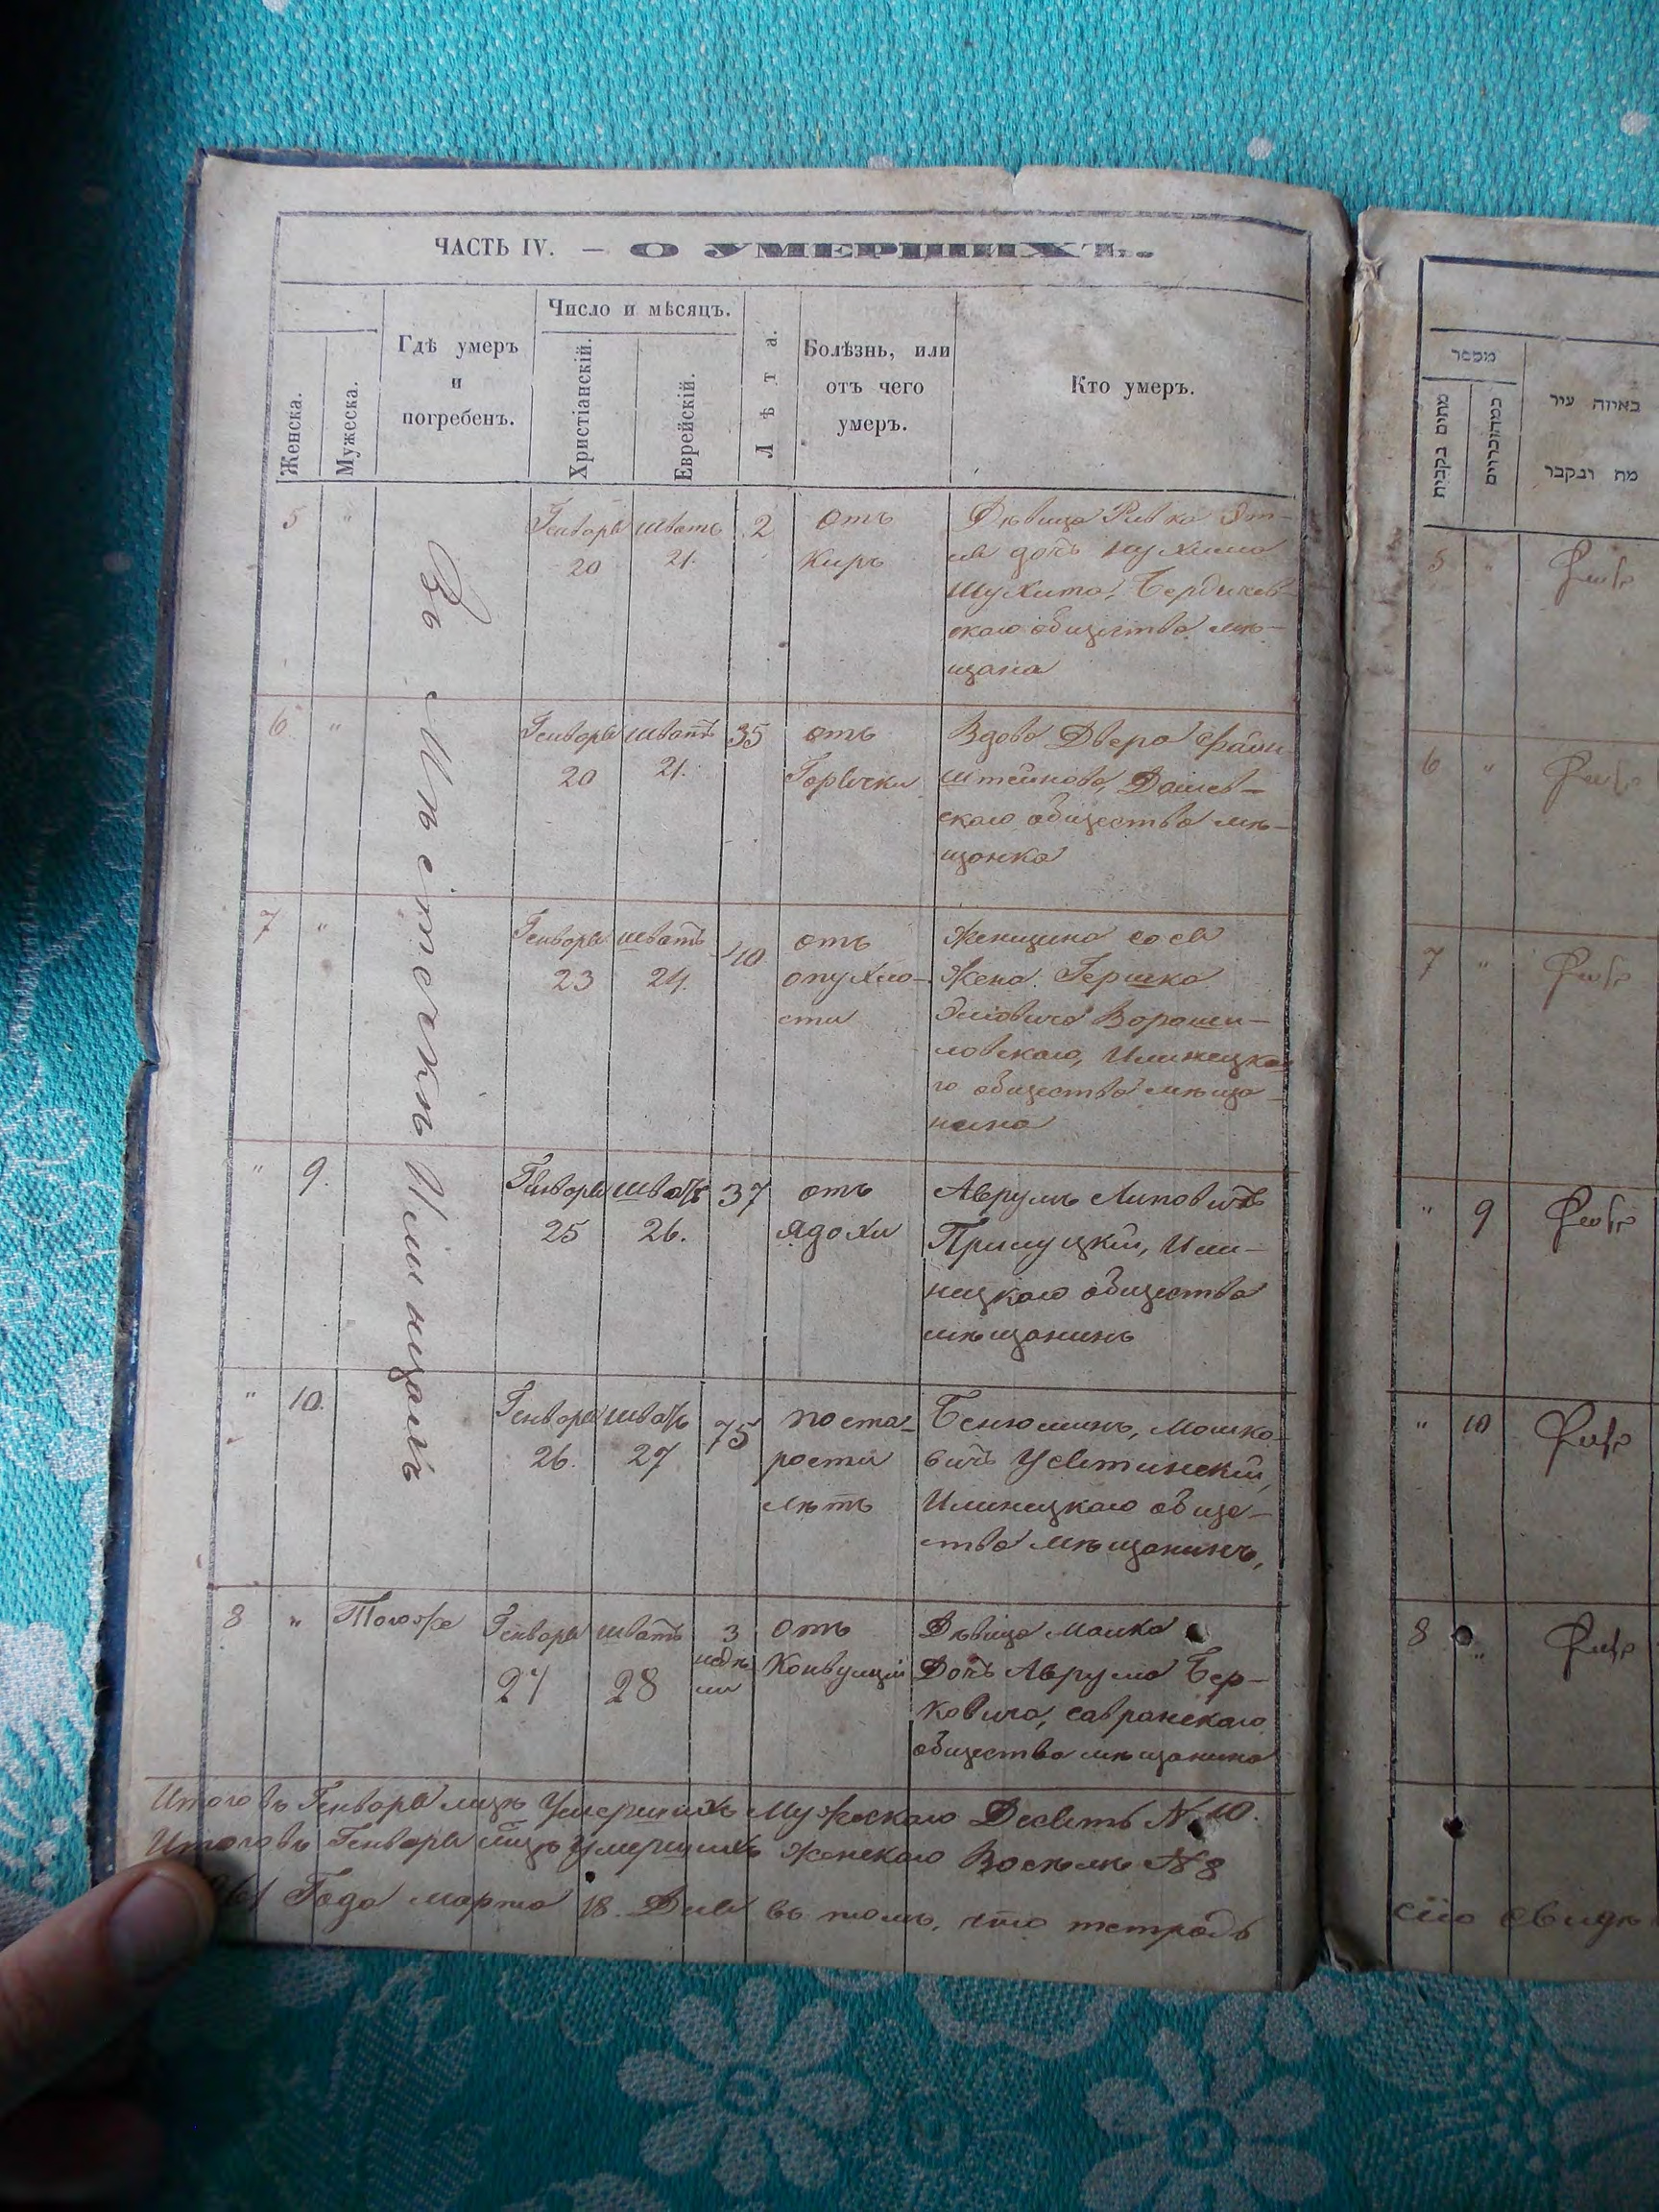 ЧАСТЬ IV. — О УМЕРШИХЪ.
Женска.
Мужеска.
Гдѣ умеръ
и
погребенъ.
Число и мѣсяцъ.
Христіанскій.
Еврейскій.
Лѣта.
Болѣзнь, или
отъ чего
умеръ.
Кто умеръ.
Въ Мѣстечкѣ Илинцахъ
5 " Генваря 20 Шватъ 21. 2
отъ
Киръ
Дѣвица Ривка Эт-
ля дочь Нухима
Шухита, Бердичев-
скаго общества мѣ-
щана
6 " Генваря 20 Шватъ 21. 35
отъ
Горячки
Вдова Двера Файн
штейнова, Дашев-
скаго общества мѣ-
щанка
7 " Генваря 23 Шватъ 24. 40
отъ
опухло-
сти
Женщина Сося
Жена Гершка
Вороши-
ловскаго, Илинецка
го общества мѣща-
нина
" 9. Генваря 25 Шватъ 26. 37
отъ
ядохи
Аврумъ Липовичъ
Прилуцкій, Или-
нецкаго общества
мѣщанинъ
" 10. Генваря 26. Шватъ 27 75
по ста-
рости
лѣтъ
Бенюминъ, Мошко-
вичъ Усятинскій,
Илинецкаго обще-
ства мѣщанинъ,
8 " Тогоже Генваря 27 Шватъ 28 3 недѣли
отъ
Конвульцій
Дѣвица Малка
Дочь Аврума Бер-
ковича, Савранскаго
общества мѣщанина
Итого въ Генварѣ лицъ Умершихъ Мужескаго Десять № 10.
Итого въ Генварѣ лицъ Умершихъ Женскаго Восемь № 8
Года марта 18. Дня въ томъ, что тетрадь
מספר
באיזה עיר
מת ונקבר
5 "
6 "
7 "
" 9
" 10
8 "
сію свидѣ